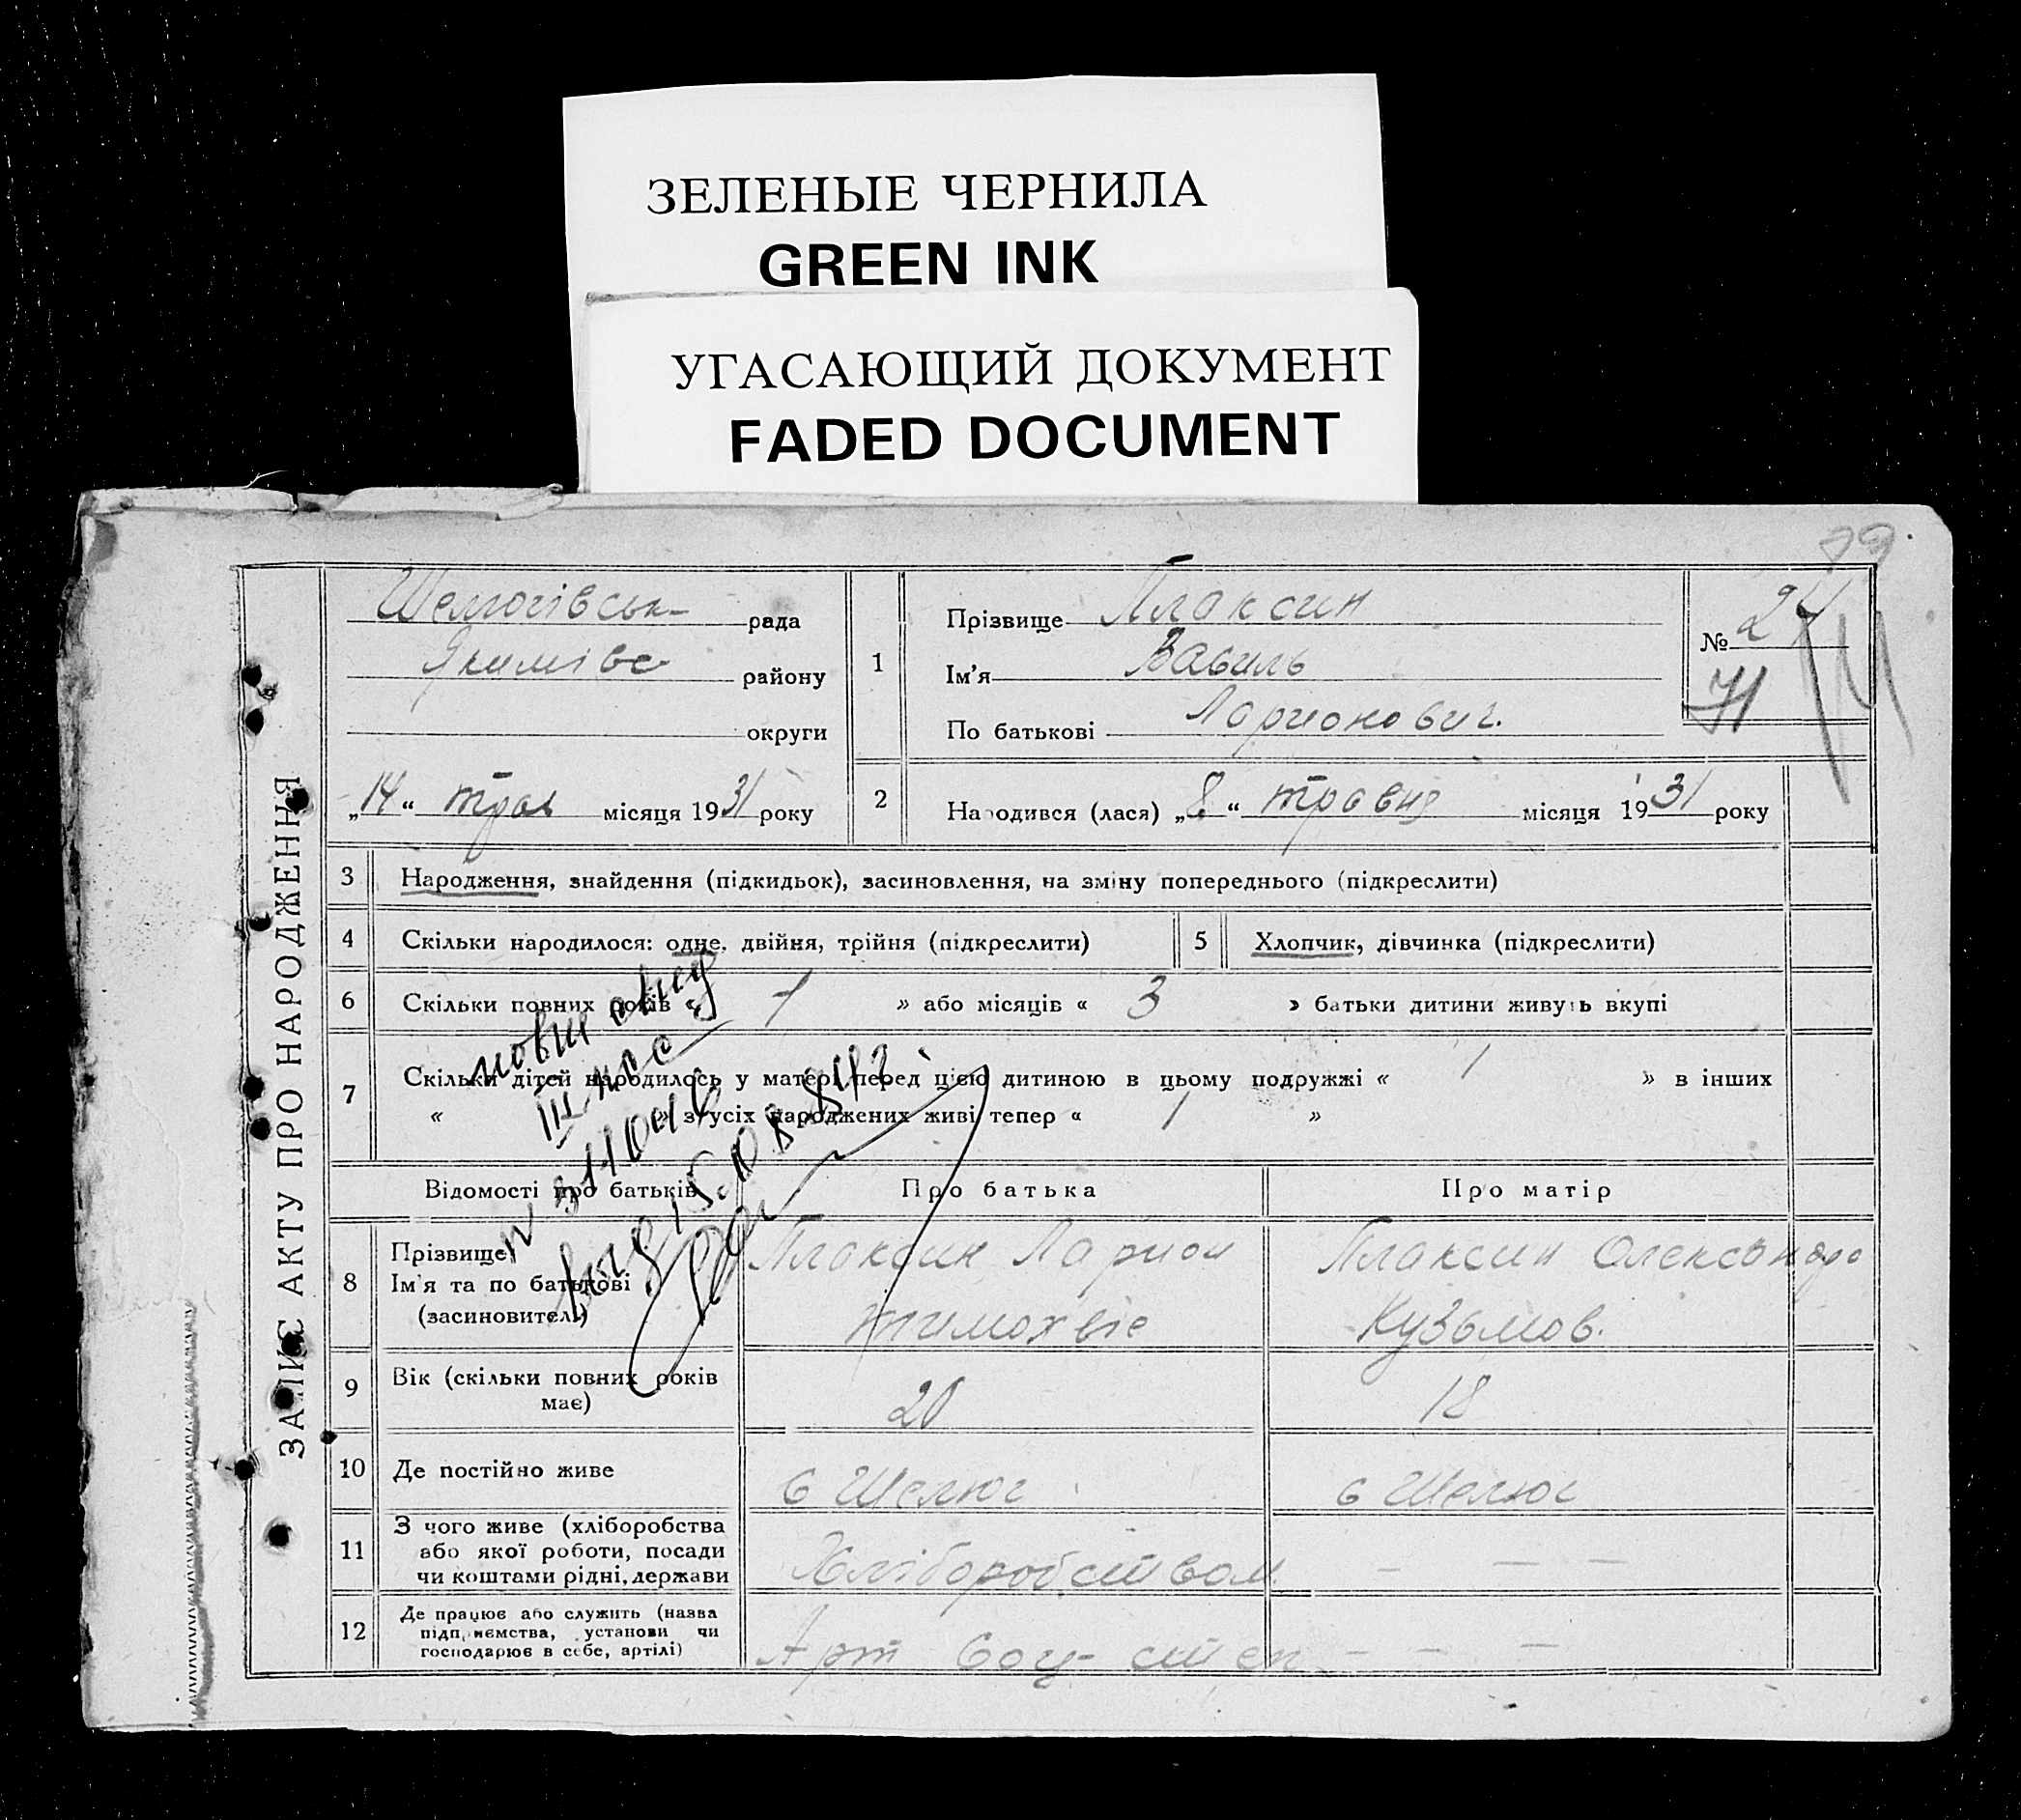 ЗЕЛЕНЫЕ ЧЕРНИЛА
GREEN INK
УГАСАЮЩИЙ ДОКУМЕНТ
FADED DOCUMENT
79
ЗАПИС АКТУ ПРО НАРОДЖЕННЯ
рада
Якимівс району
округи
„14“ трав місяця 1931 року
1
Прізвище Плаксин
Ім'я Василь
По батькові Ларионович.
№ 24
71
2 Народився (лася) „8“ травня місяця 1931 року
3 Народження, знайдення (підкидьок), засиновлення, на зміну попереднього (підкреслити)
4 Скільки народилося: одне, двійня, трійня (підкреслити)
5 Хлопчик, дівчинка (підкреслити)
6 Скільки повних років « 1 » або місяців « 3 » батьки дитини живуть вкупі
7 Скільки дітей народилось у матері перед цією дитиною в цьому подружжі « 1 » в інших
« » з усіх народжених живі тепер « 1 »
Відомості про батьків Про батька Про матір
8 Прізвище
Ім'я та по батькові
(засиновителі)
Плаксин Ларион
Тимохвіє
Плаксин Олександра
Кузьмов.
9 Вік (скільки повних років
має)
20 18
10 Де постійно живе с Шелюг с Шелюг
11 З чого живе (хліборобства
або якої роботи, посади
чи коштами рідні, держави
Хліборобством - — —
12 Де працює або служить (назва
підприємства, установи чи
господарює в себе, артілі)
Арт Соц- степ - — —